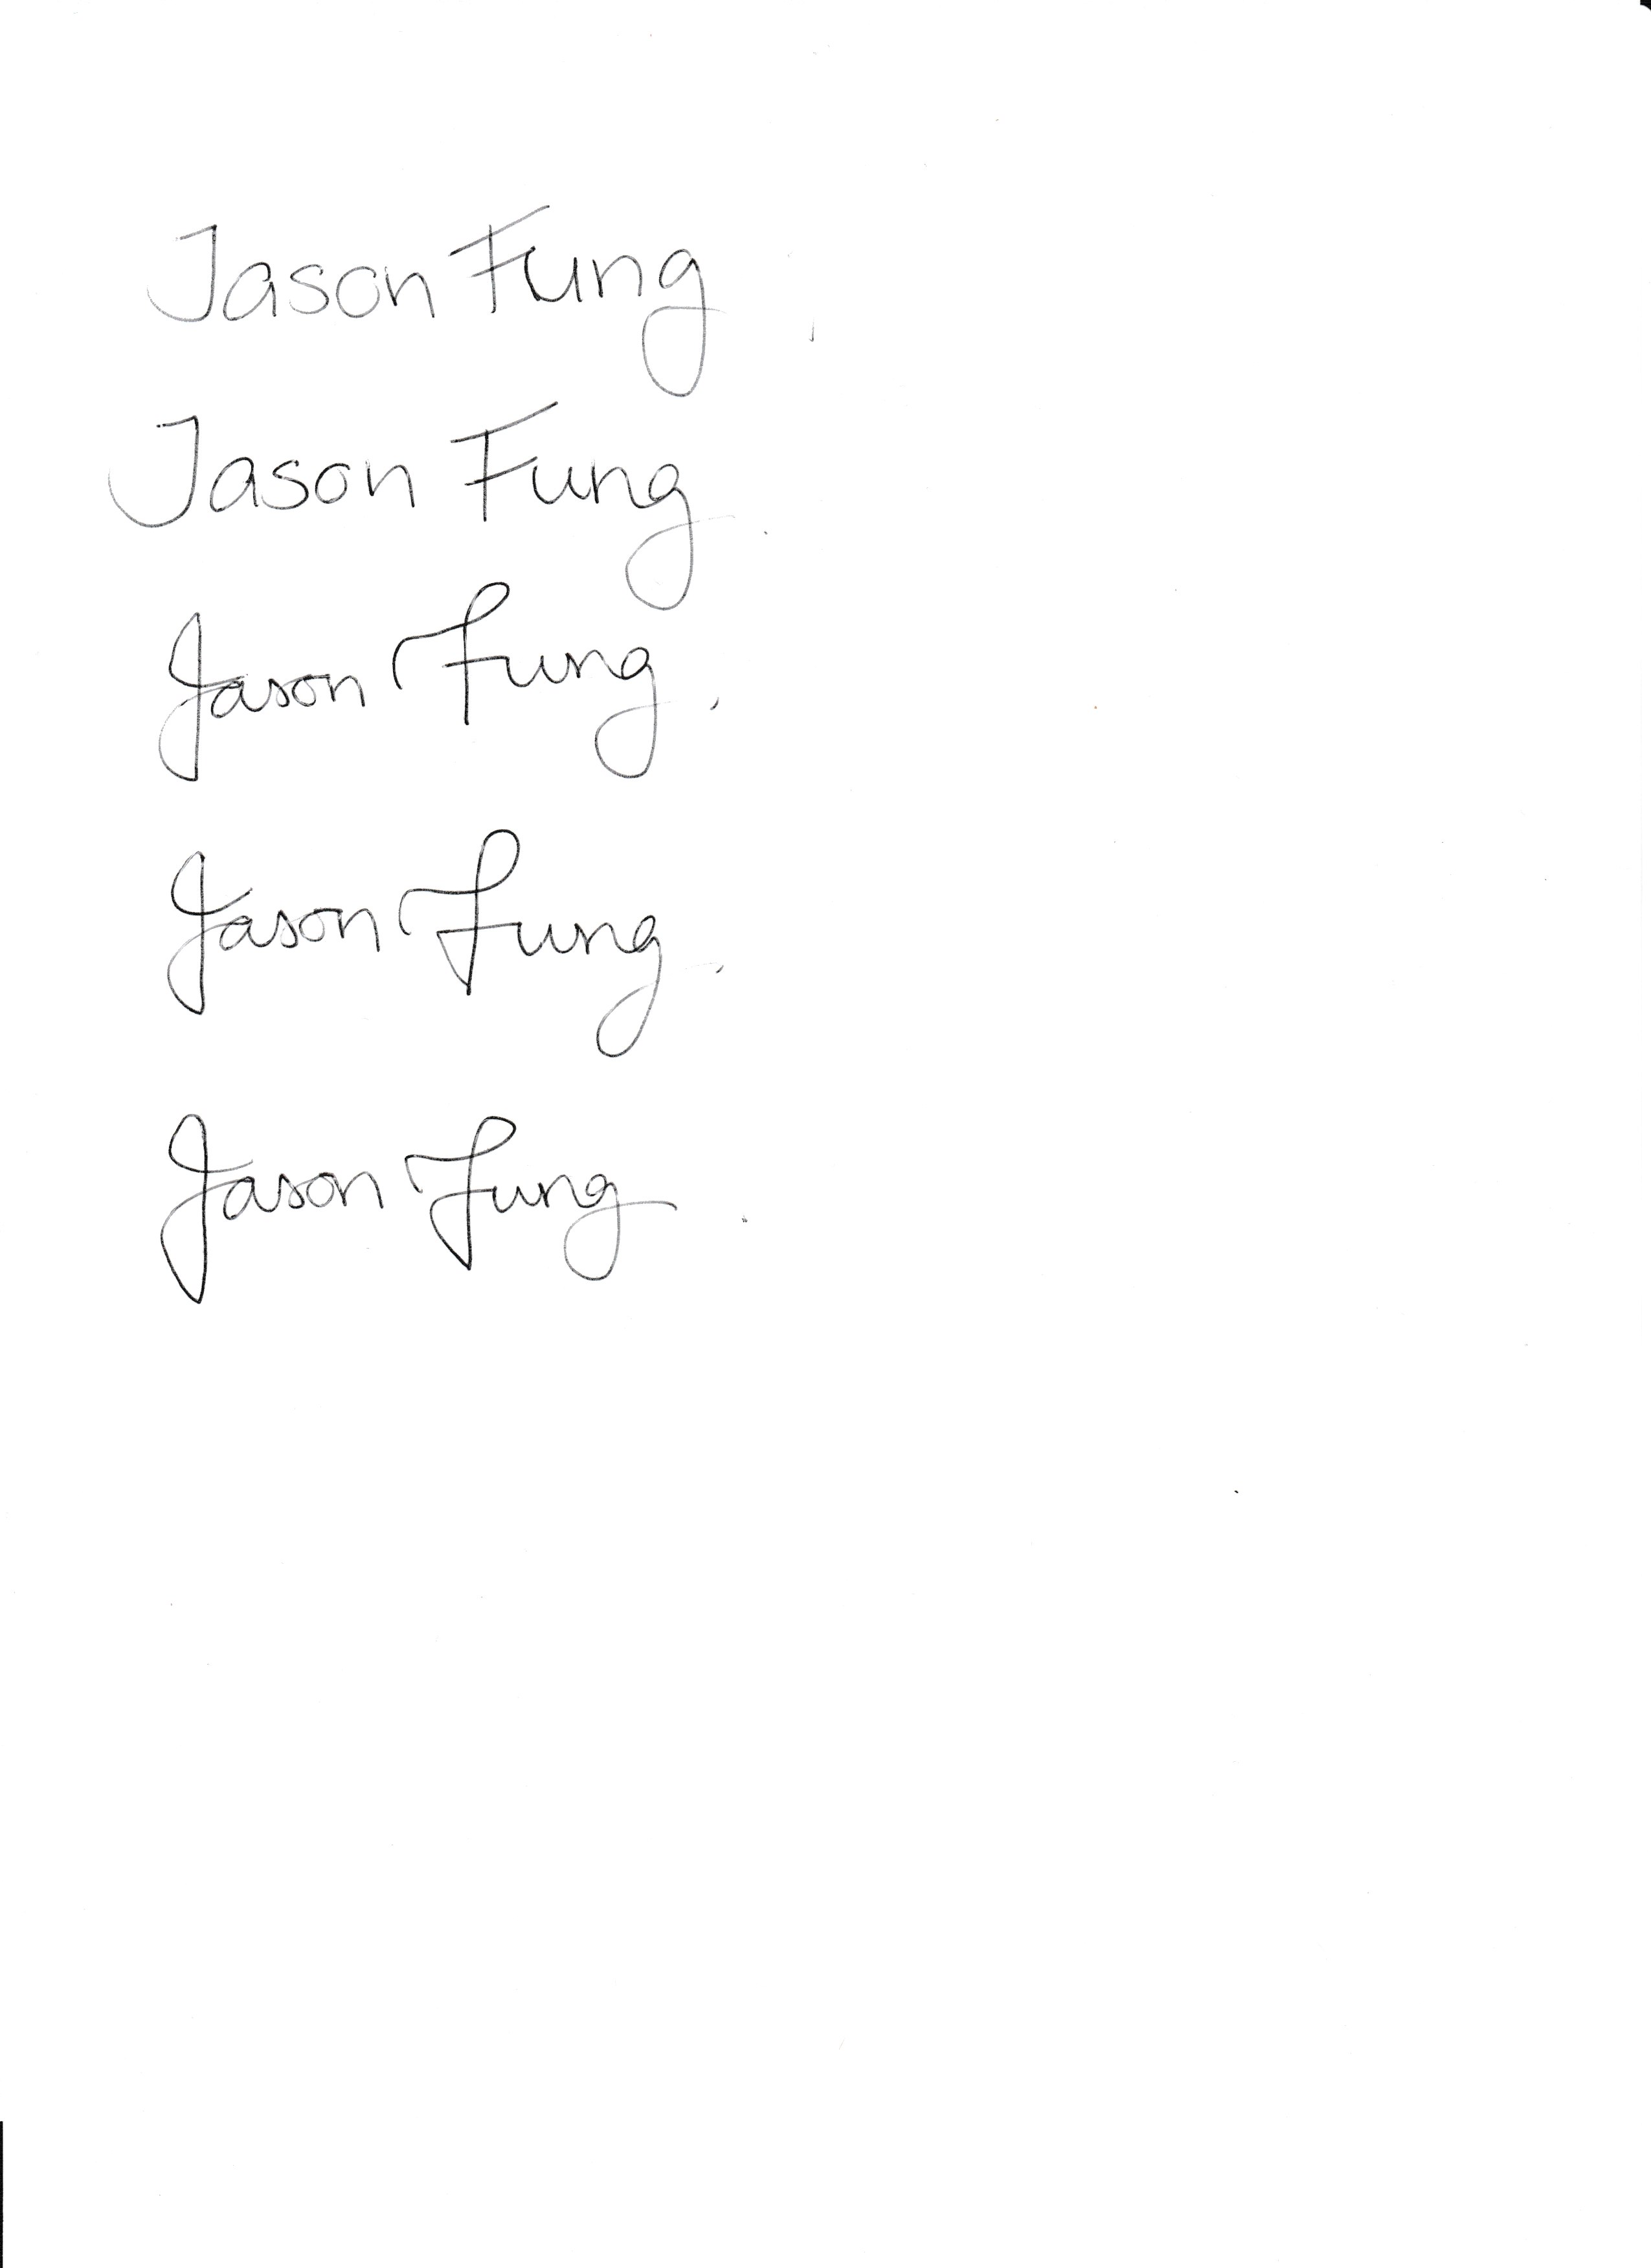 Jason Fung
Jason Fung
Jason Fung
Jason Fung
Jason Fung